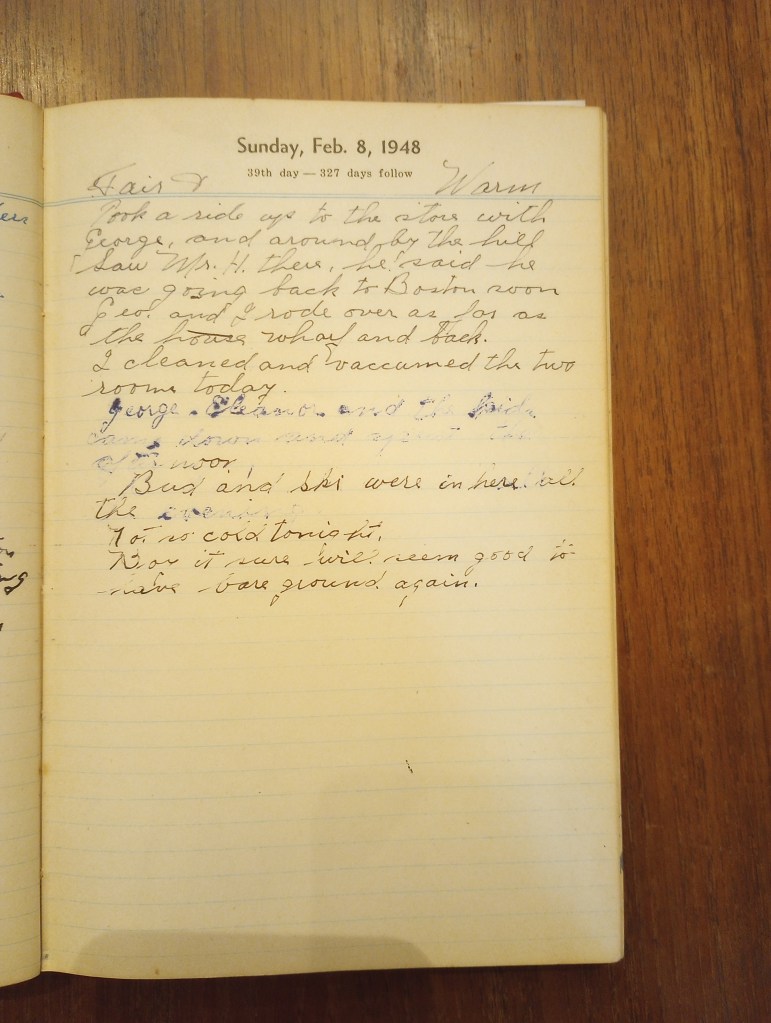 Sunday, Feb. 8, 1948
39th day — 327 days follow
Fair & Warm
Took a ride up to the store with
George, and around by the hill
Saw Mr. H. there, he said he
was going back to Boston soon
Geo. and I rode over as far as
the house wharf and back.
I cleaned and vaccumed the two
rooms today.
George. Eleanor and the kids
came down and spent the
afternoon
Bud and Ski were in here all
the evening
Not so cold tonight.
Boy it sure will seem good to
have bare ground again.